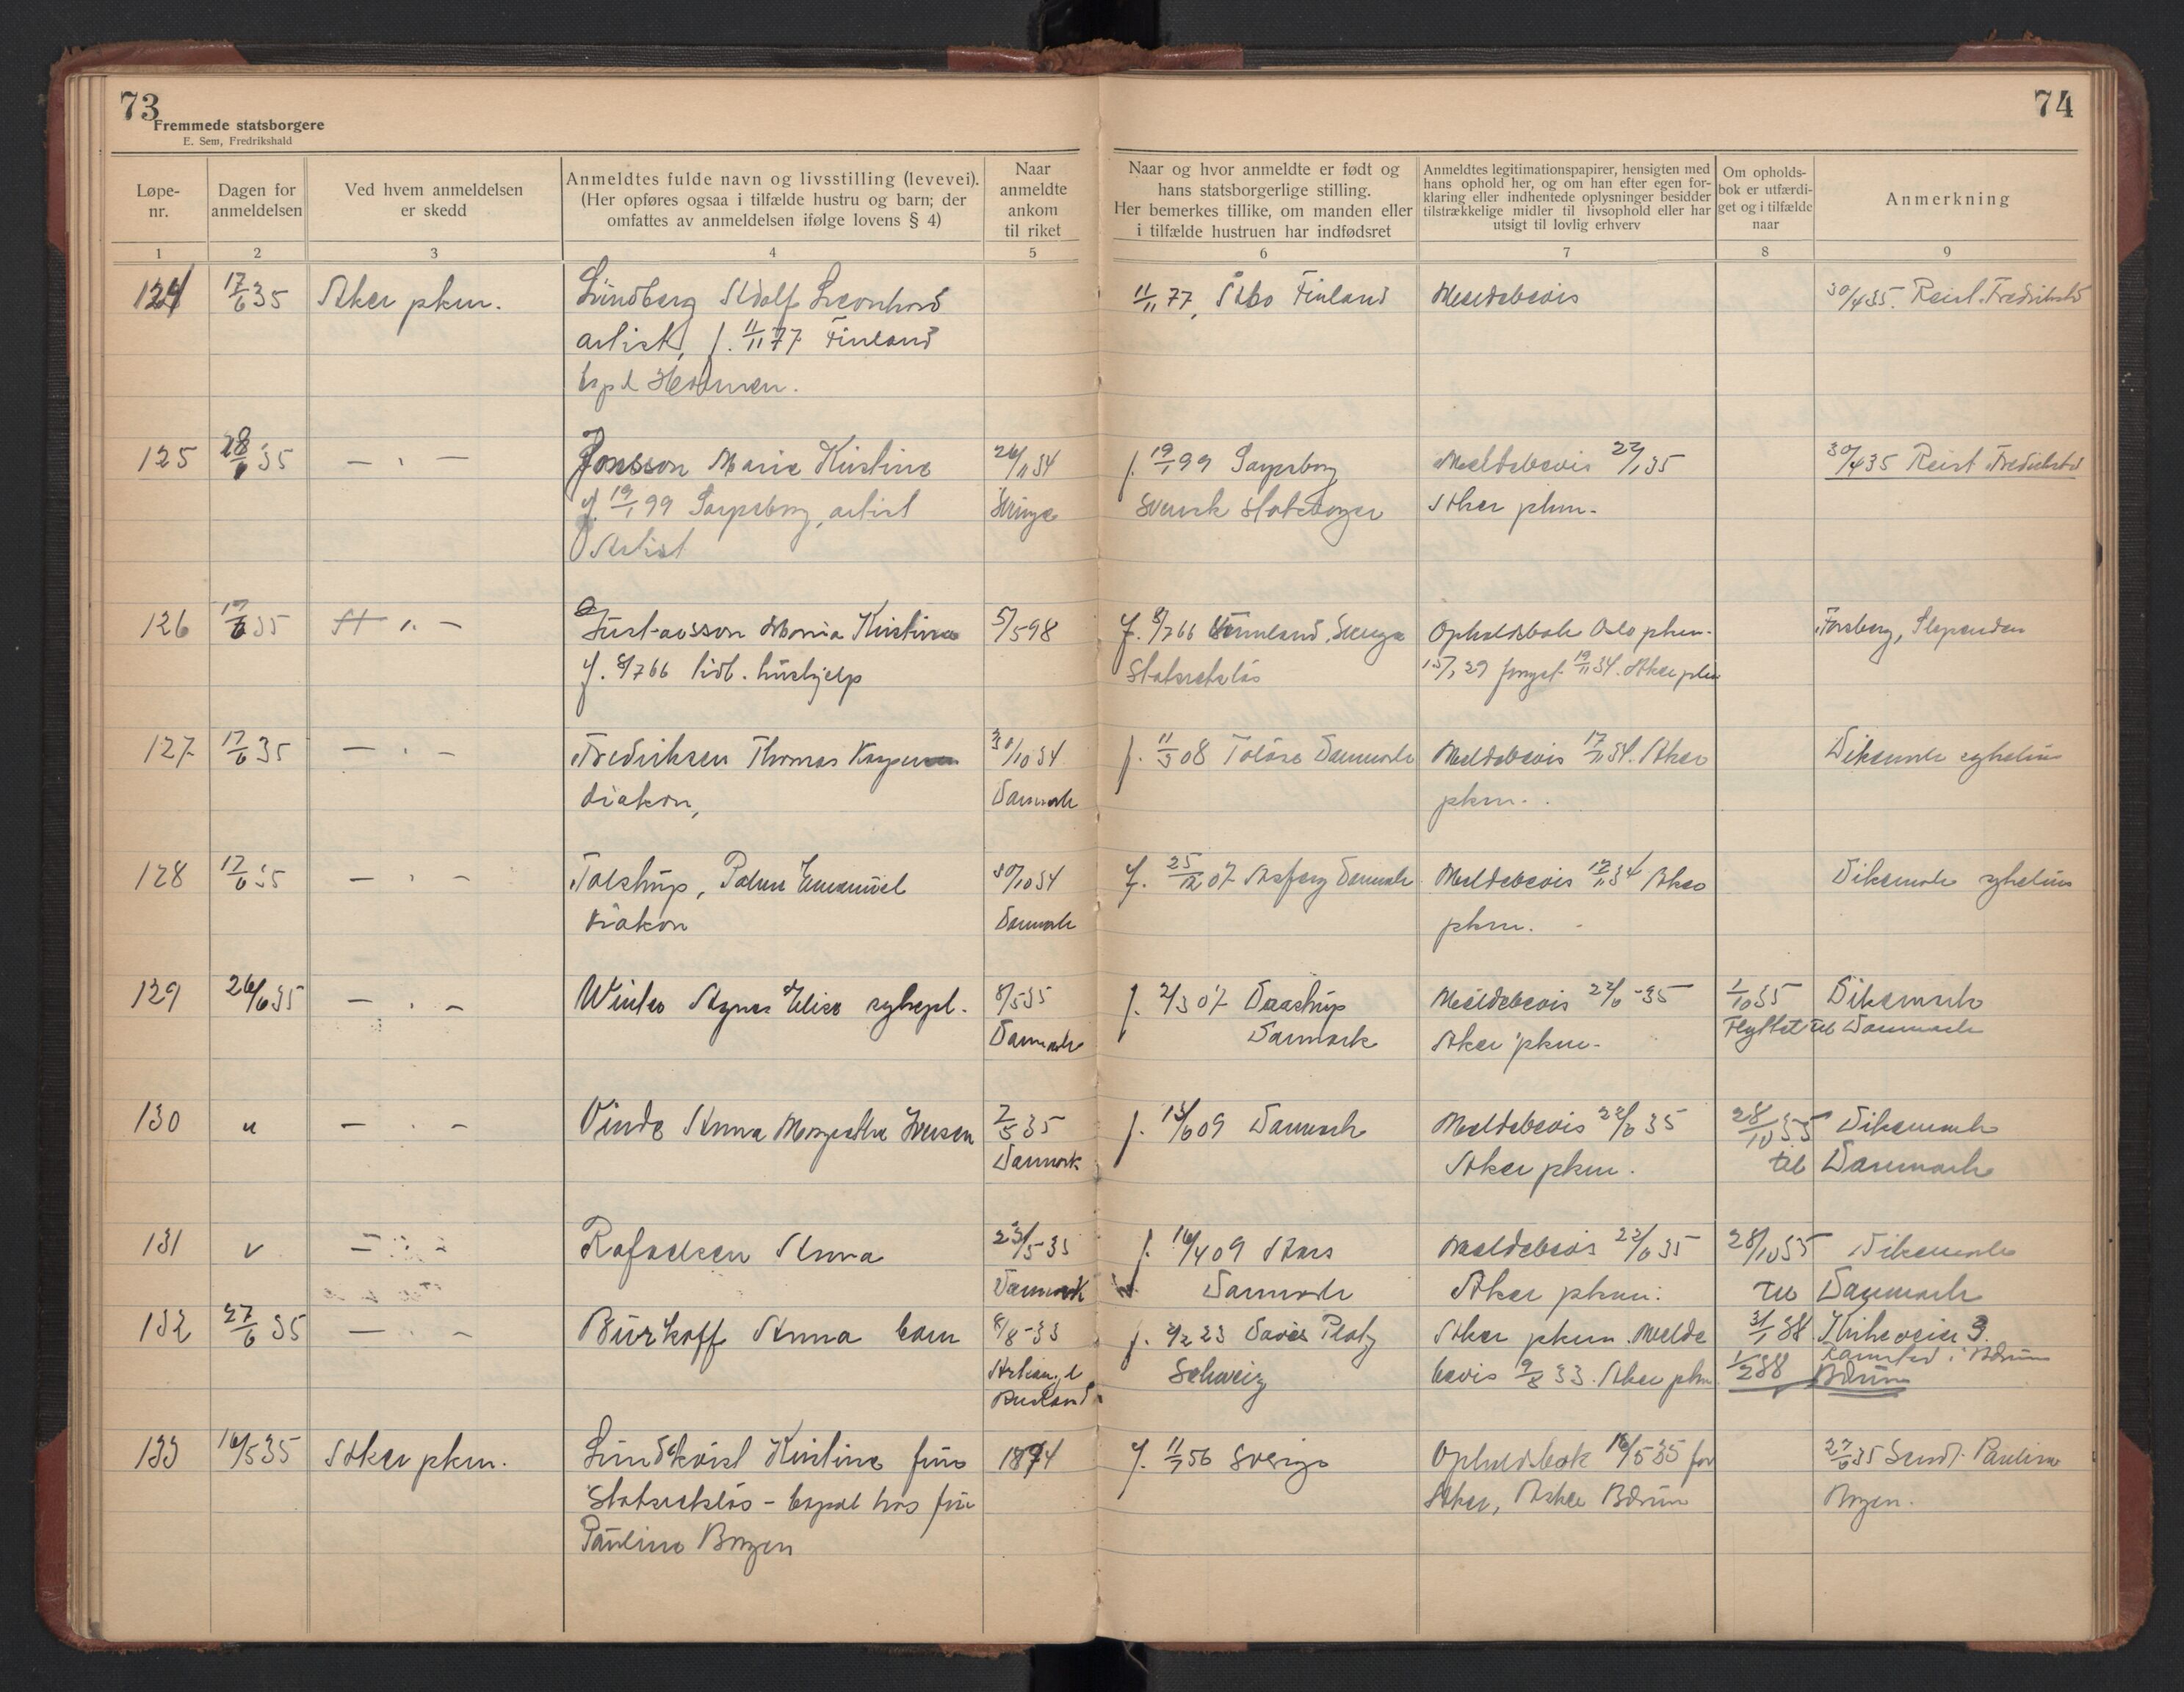 73
Fremmede statsborgere
E. Sem, Fredrikshald
74
Løpe-
nr.
Dagen for
anmeldelsen
Ved hvem anmeldelsen
er skedd
Anmeldtes fulde navn og livsstilling (levevei).
(Her opføres ogsaa i tilfælde hustru og barn; der
omfattes av anmeldelsen ifølge lovens § 4)
Naar
anmeldte
ankom
til riket
Naar og hvor anmeldte er født og
hans statsborgerlige stilling.
Her bemerkes tillike, om manden eller
i tilfælde hustruen har indfødsret
Anmeldtes legitimationspapirer, hensigten med
hans ophold her, og om han efter egen for-
klaring eller indhentede oplysninger besidder
tilstrækkelige midler til livsophold eller har
utsigt til lovlig erhverv
Om opholds-
bok er utfærdi-
get og i tilfælde
naar
Anmerkning
1 2 3 4 5 6 7 8 9
124 17/6 35 Aker pkm. Lundberg Adolf Leonhard 11/11 77, Åbo Finland Meldebevis 30/4 35. Reist Fredrikstad
artist, f. 11/11 77 Finland
125 28/6 35 — " — Jonsson Marie Kristine 26/11 34 f. 19/1 99 Sarpsborg Meldebevis 22/1 35 30/4 35 Reist Fredrikstad
f. 19/1 99 Sarpsborg, artist Sverige Svensk Statsborger Aker pkm.
Artist
126 17/6 35 — " — Gustavsson Maria Kristine 5/5 98 f. 8/7 66 Vermland, Sverige Opholdsbok Oslo pkm. Forsberg, Slependen
f. 8/7 66 hush. hushjelp Statsretsløs 15/7 29 34. Aker pkm
127 17/6 35 — " — Fredriksen Thomas 30/10 34 f. 11/3 08 Tølløse Danmark Meldebevis 17/11 34. Aker Dikemark sykehus
diakon, Danmark pkm.
128 17/6 35 — " — Tolstrup, Palus Emanuel 30/10 34 f. 25/12 07 Asferg Danmark Meldebevis 17/11 34 Aker Dikemark sykehus
diakon Danmark pkm.
129 26/6 35 — " — Winter Agnes Elise sykepl. 8/5 35 f. 2/3 07 Daastrup Meldebevis 22/6 - 35 1/10 35 Dikemark
Danmark Danmark Aker pkm. Flyttet til Danmark
130 " — " — Vinde Anna Margrethe Iversen 2/5 35 f. 13/6 09 Danmark Meldebevis 22/6 35 28/10 35 Dikemark
Danmark Aker pkm. til Danmark
131 " — " — Rafaelsen Anna 23/5 - 35 f. 16/4 09 Aars Meldebevis 22/6 35 28/10 35 Dikemark
Danmark Danmark Aker pkm. til Danmark
132 27/6 35 — " — Burkoff Anna barn 8/8 - 33 f. 2/2 23 Davos Platz Aker pkm. Melde 31/1 38 Kirkeveien 3.
Arkangel Schweiz bevis 9/8 33. Aker pkm 1/2 38 Ramstad i Bærum
Rusland Bærum
133 16/5 35 Aker pkm. Lundkvist Kristine frue 1874 f. 11/7 56 Sverige Opholdsbok 16/5 35 for 27/6 35 Sendt Pauline
Statsretsløs - bopæl hos frue Aker, Asker Bærum Borgen.
Pauline Borgen